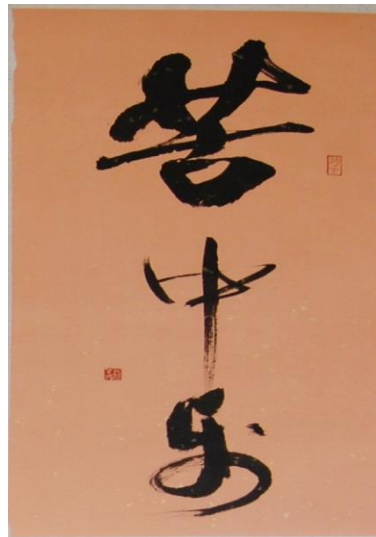 苦中乐